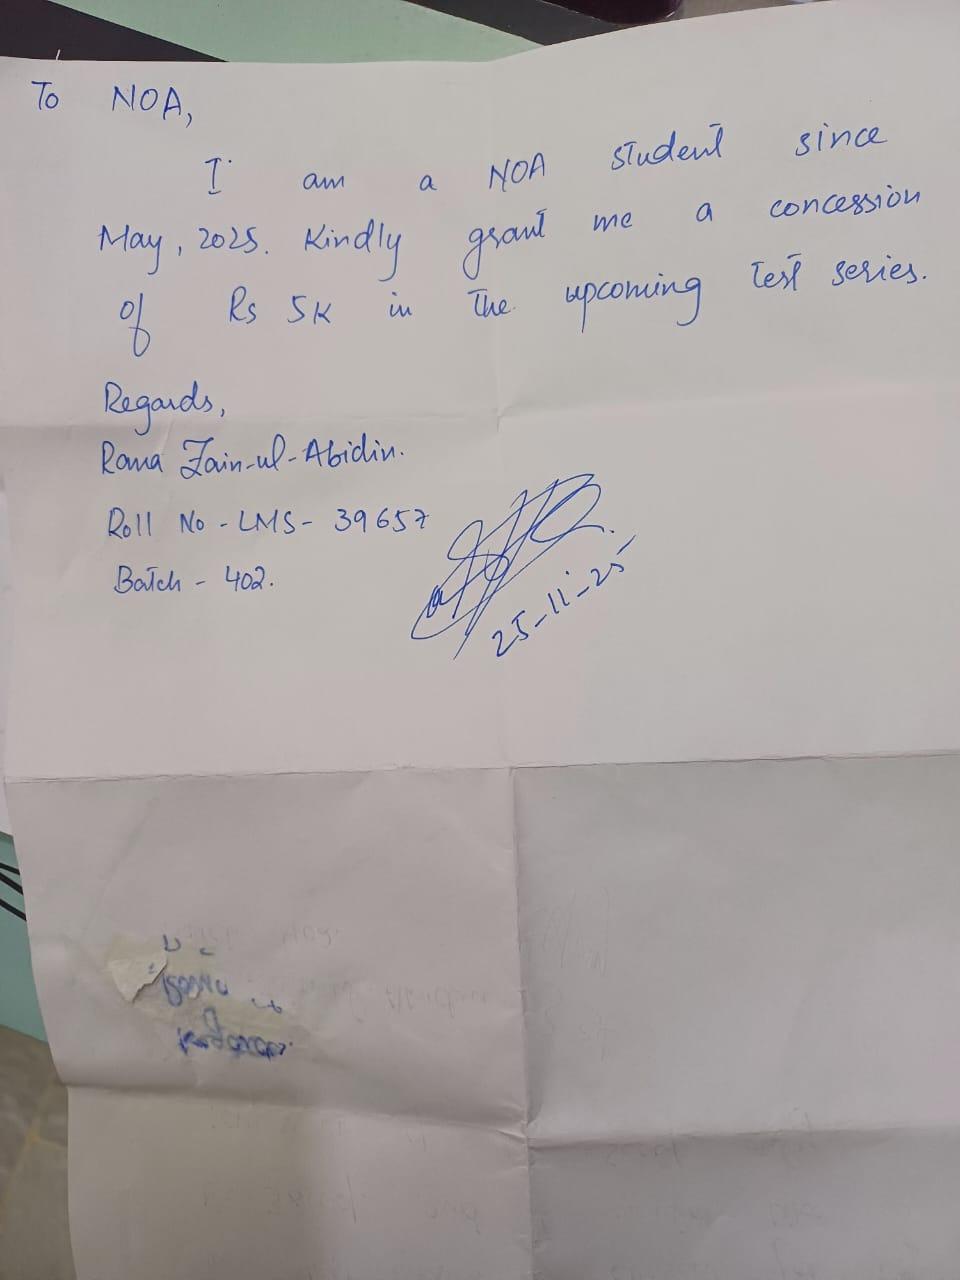 To NOA,
I am a NOA student since
May, 2025. Kindly grant me a concession
of Rs 5K in the upcoming test series.
Regards,
Rana Zain-ul-Abidin.
Roll No - LMS - 39657
Batch - 402.
25-11-25